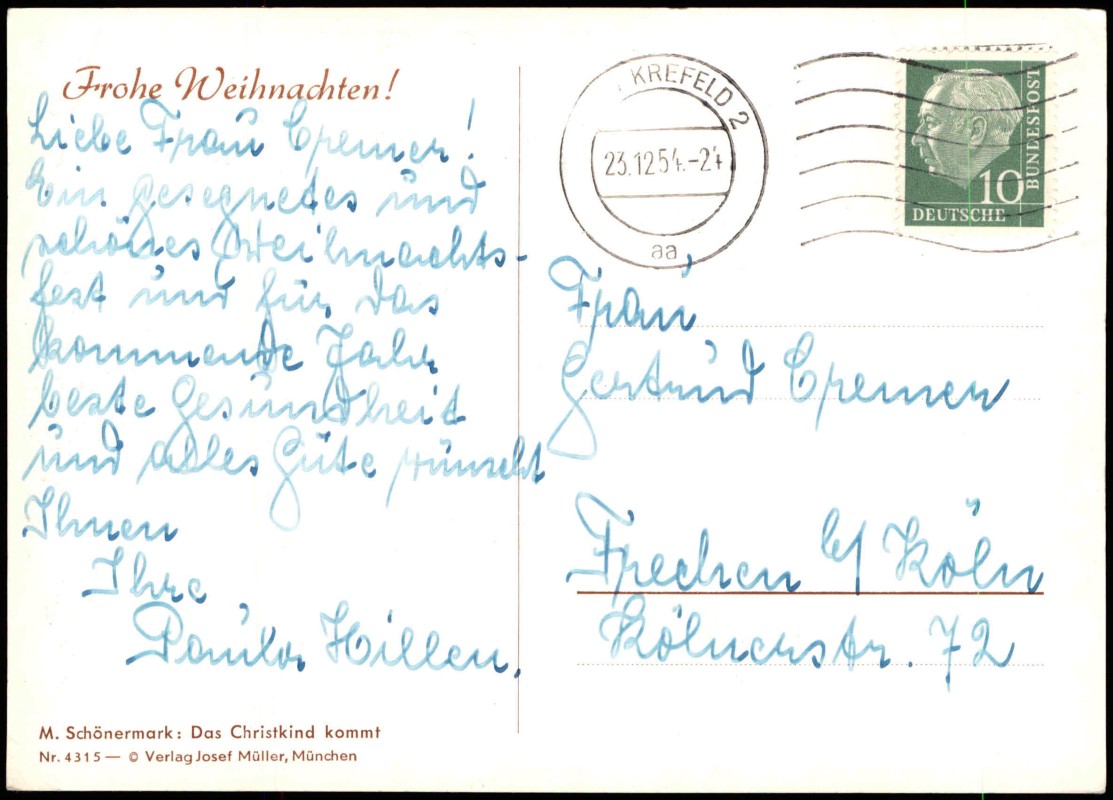 Frohe Weihnachten!
Liebe Frau Cremer!
Ein gesegnetes und
schönes Weihnachts-
fest und für das
kommende Jahr
beste Gesundheit
und alles Gute wünscht
Ihnen
Ihre
Paula Hillen.
M. Schönermark: Das Christkind kommt
Nr. 4315 — © Verlag Josef Müller, München
KREFELD 2
23.12.54.-24
aa
10
DEUTSCHE
BUNDESPOST
Frau
Gertrud Cremer
Frechen b/ Köln
Kölnerstr. 72